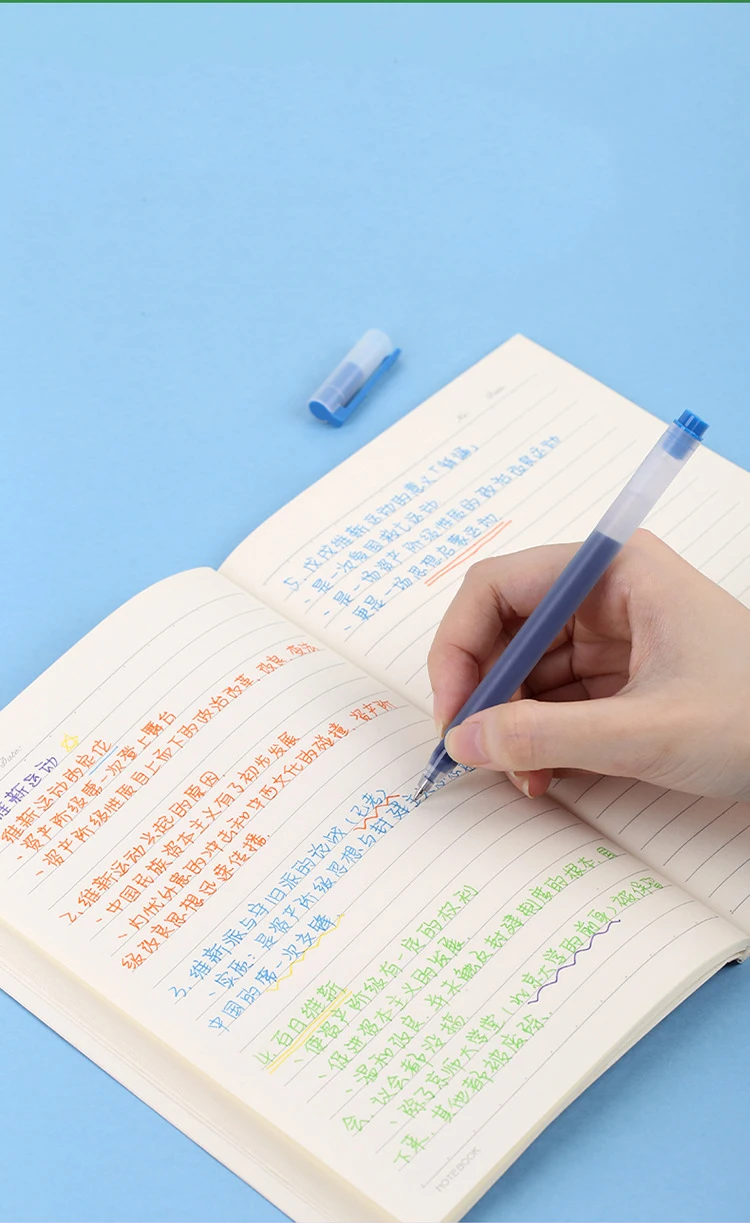 维新运动
维新运动的定位
、资产阶级第一次登上舞台
、资产阶级性质自上而下的政治改革、改良、变法
2、维新运动兴起的原因
、中国民族资本主义有了初步发展
、内忧外患的冲击动 中西文化的碰撞、资产阶
级改良思想迅速传播.
3、维新派与守旧派的论战(
、实质:是资产阶级思想与封建
中国的第一次交锋
4、百日维新
、使资产阶级有一定的权利
、促进资本主义的发展.
、温和改良.并未触及封建制度的根本.国
会、议会都没提.
、除了京师大学堂(北京大学的前身)被保留
下来、其他都被废除.
NOTEBOOK
No Date
5、戊戌维新运动的意义「
、是一次爱国救亡运动
、是一场资产阶级性质的政治改良运动
、更是一场思想启蒙运动